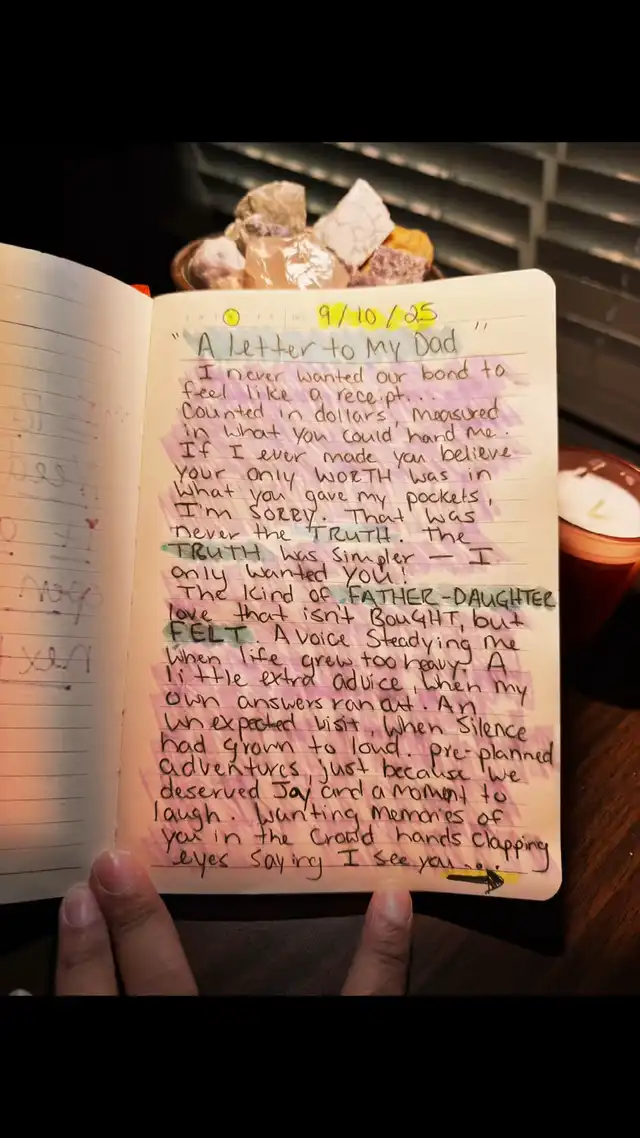 9/10/25
"A Letter to My Dad"
I never wanted our bond to
feel like a receipt...
Counted in dollars, measured
in what you could hand me.
If I ever made you believe
your only WORTH was in
what you gave my pockets,
I'm SORRY. That was
never the TRUTH. The
TRUTH was simpler — I
only wanted you!
The kind of FATHER-DAUGHTER
love that isn't BOUGHT, but
FELT. A voice steadying me
when life grew too heavy. A
little extra advice, when my
own answers ran out. An
unexpected visit, when silence
had grown to loud. pre-planned
adventures, just because we
deserved Joy and a moment to
laugh. wanting memories of
you in the crowd hands clapping
eyes saying I see you....